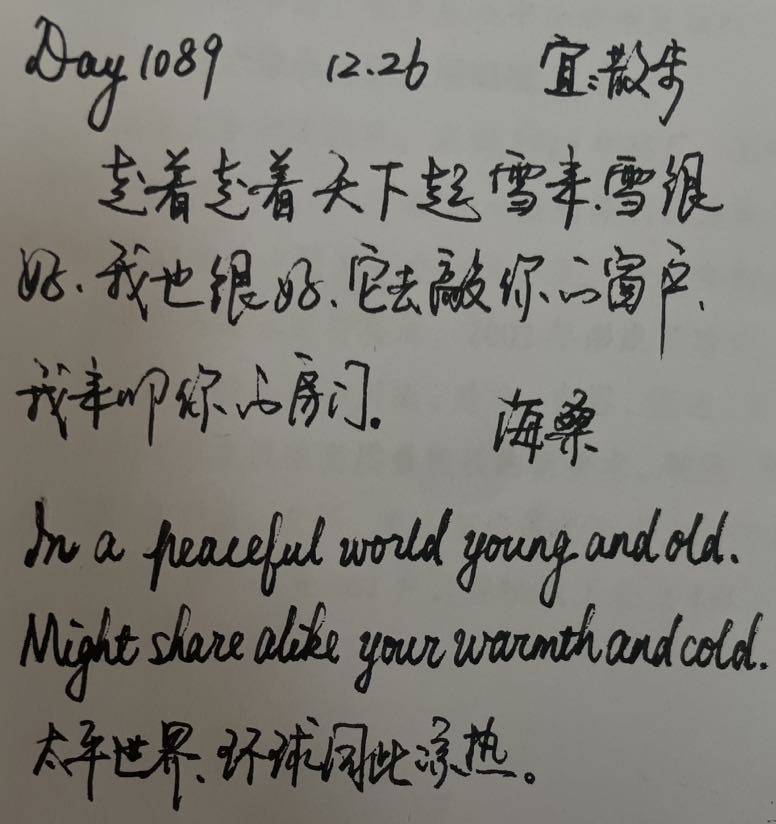 Day 1089 12.26 宜:散步
走着走着天下起雪来.雪很
好、我也很好、它去敲你的窗户、
我来叩你的房门。 海桑
In a peaceful world young and old.
Might share alike your warmth and cold.
太平世界、环球同此凉热。